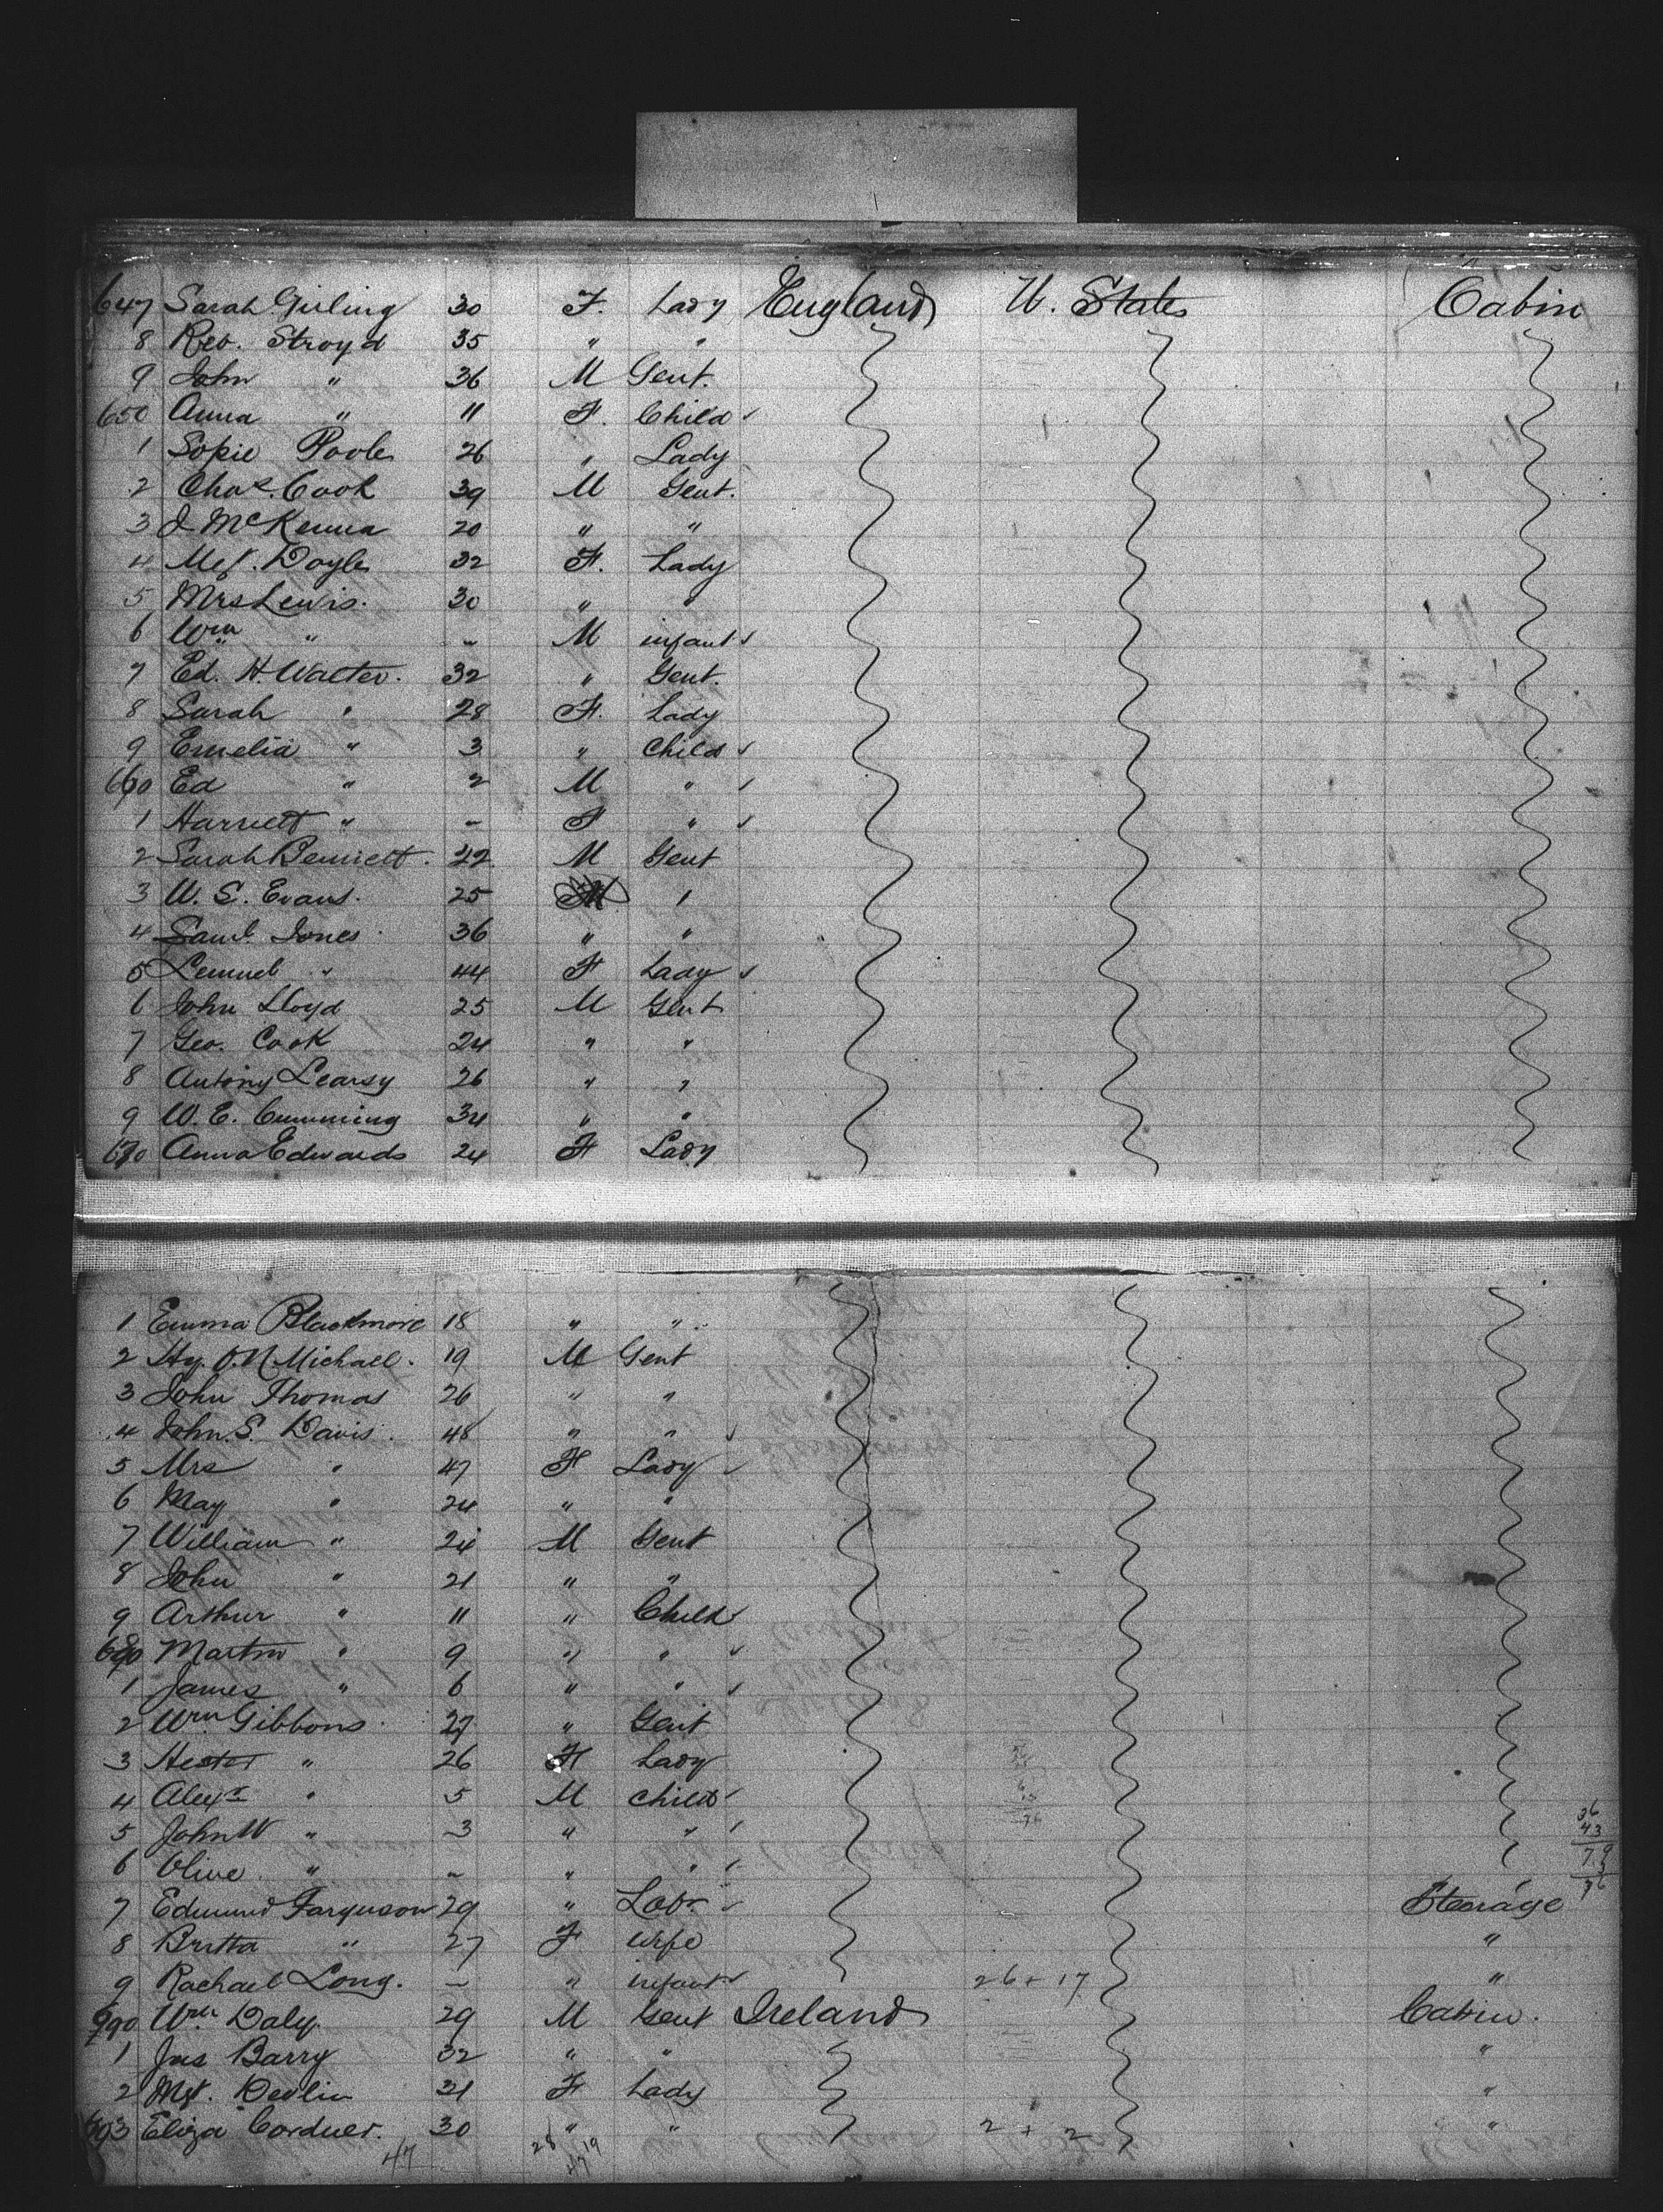 647 Sarah Girling 30 F. Lady England U. States Cabin
8 Reb. Stroyd 35 " "
9 John " 36 M Gent.
650 Anna " 11 F. Child ✓
1 Sopie Poole 26 " Lady
2 Chas. Cook 39 M Gent.
3 J McKenna 20 " "
4 Mgt. Doyle 32 F. Lady
5 Mrs Lewis. 30 " "
6 Wm " - M infant ✓
7 Ed. H. Walter. 32 " Gent.
8 Sarah " 28 F. Lady
9 Emelia " 3 " Child ✓
660 Ed " 2 M " ✓
1 Harriett " - F " ✓
2 Sarah Bennett. 22 M Gent
3 W. S. Evans. 25 M "
4 Saml. Jones. 36 " "
5 Lemuel " 44 F Lady ✓
6 John Lloyd 25 M Gent
7 Geo. Cook 24 " "
8 Antony Learsy 26 " "
9 W. E. Cumming 34 " "
670 Anna Edwards 24 F Lady
1 Emma Blackmore 18 " "
2 Hy. O. N Michael. 19 M Gent
3 John Thomas 26 " "
4 John. S. Davis. 48 " " ✓
5 Mrs " 47 F Lady ✓
6 May " 24 " "
7 William " 24 M Gent
8 John " 21 " "
9 Arthur " 11 " Child ✓
680 Martin " 9 " " ✓
1 James " 6 " " ✓
2 Wm. Gibbons. 27 " Gent
3 Hester " 26 F Lady
4 Alexr " 5 M Child ✓
5 John W " 3 " " ✓
6 Olive " - " " ✓
7 Edmund Farguson 29 " Labr ✓ Steerage
8 Britta " 27 F Wife "
9 Rachael Long. - " infant ✓ 26 + 17 "
690 Wm. Daly. 29 M Gent Ireland Cabin.
1 Jas Barry 32 " " "
2 Mgt. Devlin 21 F Lady "
693 Eliza Corduer. 30 " " 2 + 2 "
47 28 19
47
36
43
79